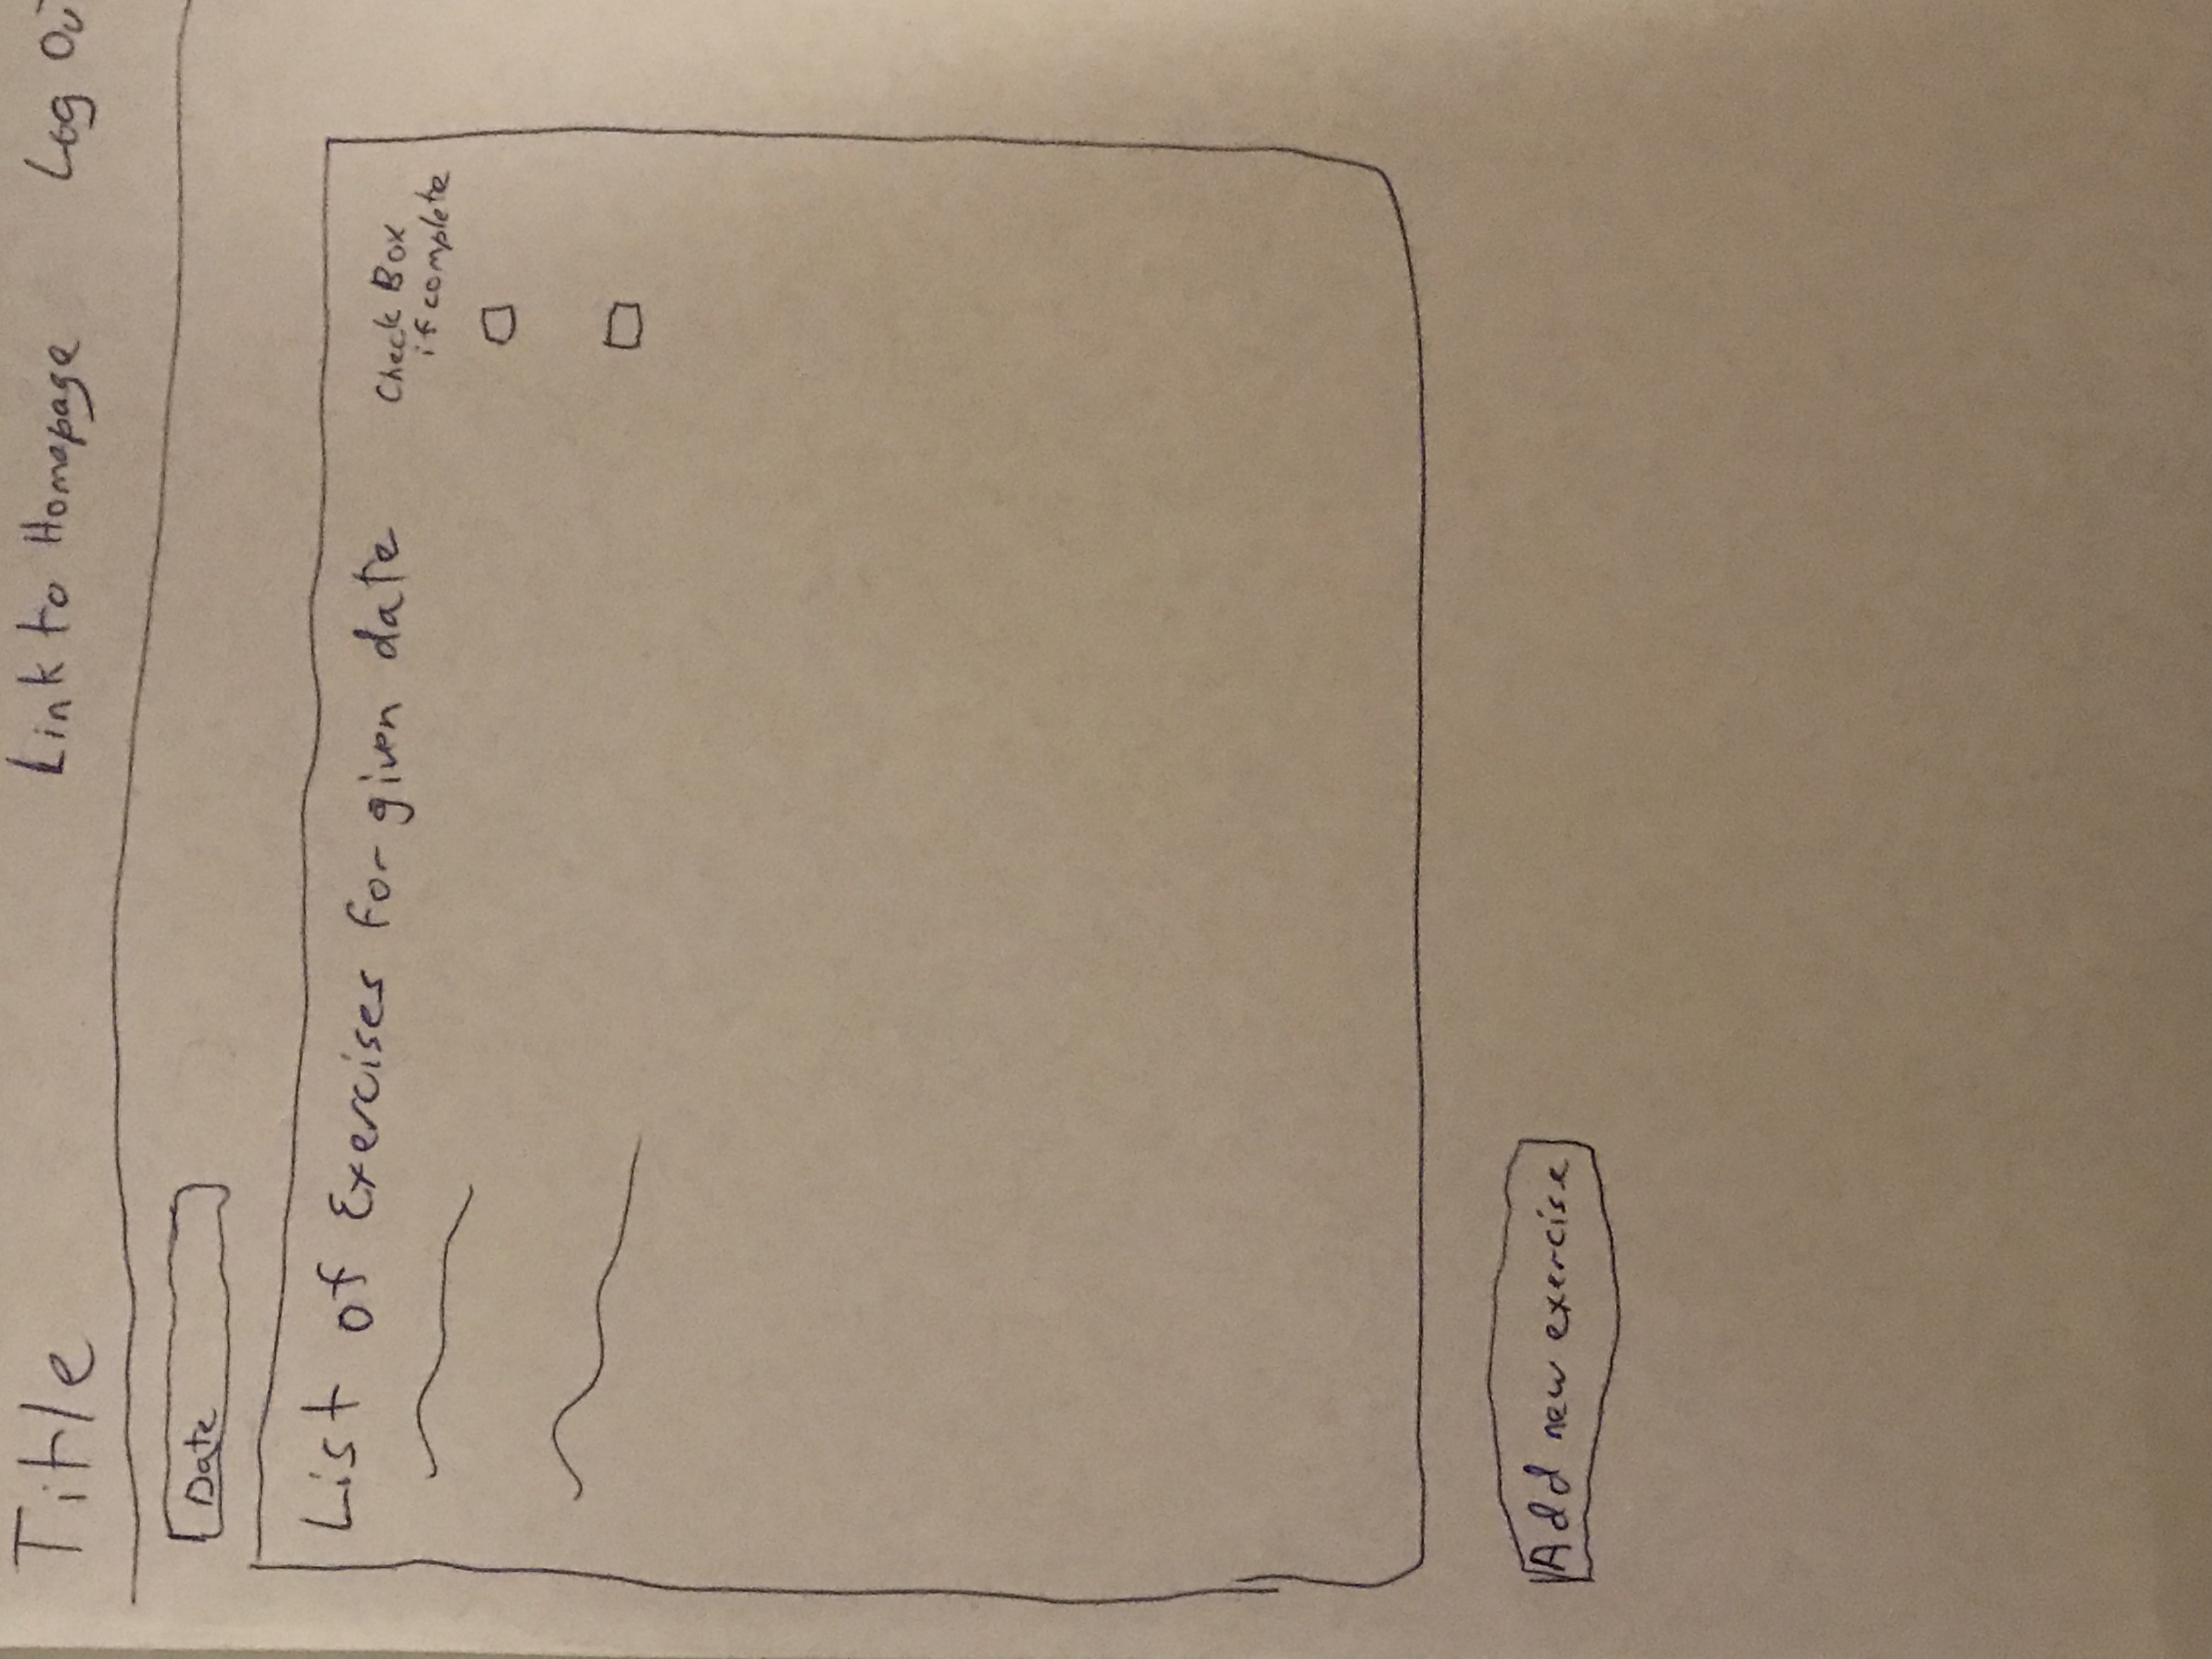 Title Link to Homepage Log
Date
List of Exercises for given date
Check Box
if complete
Add new exercise